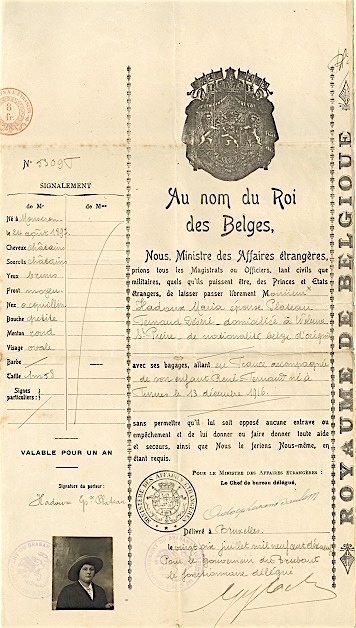 ROYAUME DE BELGIQUE
Au nom du Roi
des Belges,
Nous, Ministre des Affaires étrangères,
prions tous les Magistrats ou Officiers, tant civils que
militaires, quels qu'ils puissent être, des Princes et Etats
étrangers, de laisser passer librement
Hadoux Maria épouse Plateau
Fernand
de nationalité belge d'origine
avec ses bagages, allant en France accompagnée
de son enfant Fernand né à
le 13 décembre 1916.
sans permettre qu'il lui soit apposé aucune entrave ou
empêchement et de lui donner ou faire donner toute aide
et secours, ainsi que Nous le ferions Nous-même, en
étant requis.
POUR LE MINISTRE DES AFFAIRES ÉTRANGÈRES :
Le Chef de bureau délégué,
Délivré à Bruxelles
le vingt six juillet mil neuf cent
Pour le Gouverneur du Brabant
le fonctionnaire délégué
N° 53095
SIGNALEMENT
de Mr de Mme
Né à Mouscron
le août 1897
Cheveux châtains
Sourcils châtains
Yeux bruns
Front moyen
Nez aquilin
Bouche petite
Menton rond
Visage ovale
Barbe
Taille 1m58
Signes
particuliers :
VALABLE POUR UN AN
Signature du porteur :
Hadoux Plateau